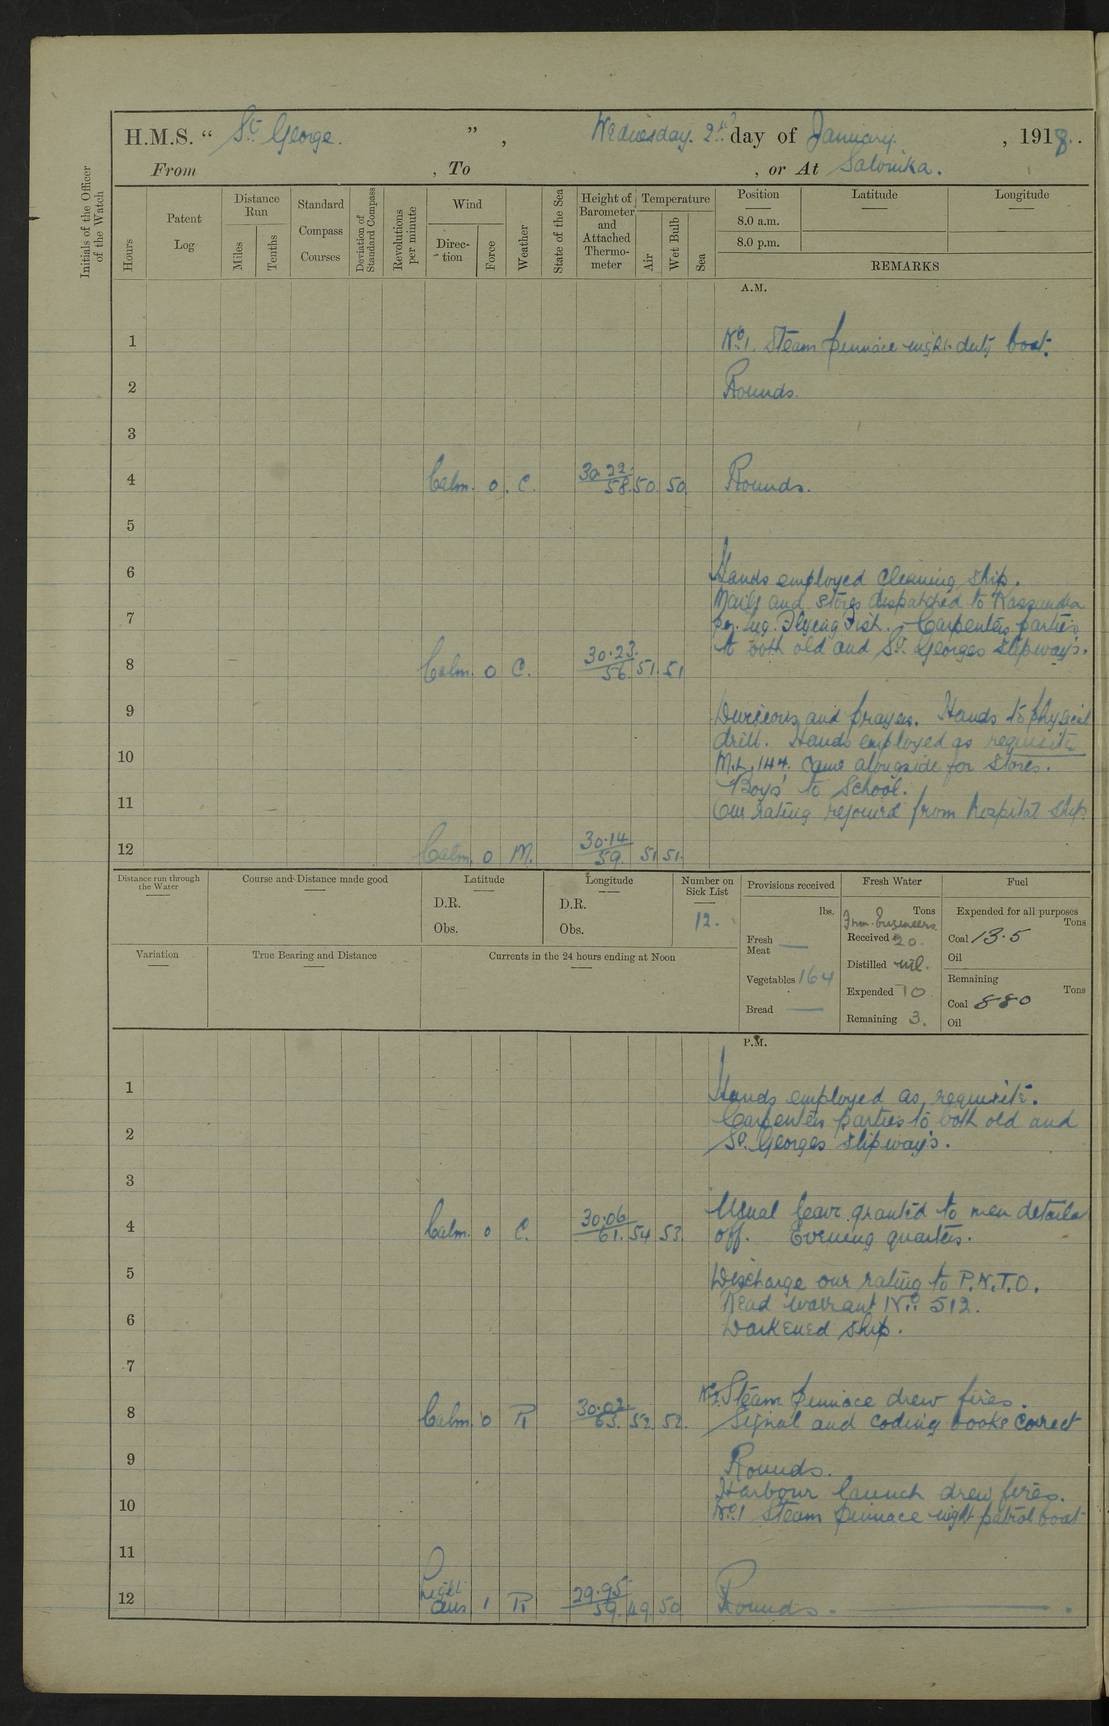 H.M.S. “ St George. ” , Wednesday. 2nd day of January. , 1918..
From , To , or At Salonika.
Initials of the Officer of the Watch
Hours
Patent Log
Distance Run
Miles
Tenths
Standard Compass Courses
Deviation of Standard Compass
Revolutions per minute
Wind
Direc-tion
Force
Weather
State of the Sea
Height of Barometer and Attached Thermo-meter
Temperature
Air
Wet Bulb
Sea
Position Latitude Longitude
8.0 a.m.
8.0 p.m.
REMARKS
A.M.
1 No.1. Steam pinnace night duty boat.
2 Rounds.
3
4 Calm. 0. C. 30.22. 58. 50. 50. Rounds.
5
6 Hands employed cleaning ship.
Mails and stores dispatched to Kassandra
7 per. tug. Flying Fish. Carpenters parties
to both old and St. Georges slipway's.
8 Calm. 0 C. 30.23. 56. 51. 51
9 Divisions and prayers. Hands to physical
drill. Hands employed as requisite
10 M.L. 144. came alongside for stores.
Boys' to School.
11 One rating rejoined from hospital ship
12 Calm. 0 M. 30.14 59. 51 51.
Distance run through the Water
Course and Distance made good
Latitude
D.R.
Obs.
Longitude
D.R.
Obs.
Number on Sick List
12.
Provisions received
lbs.
Fresh Meat —
Vegetables 164
Bread —
Fresh Water
Tons
From Engineers
Received 20.
Distilled nil.
Expended 10
Remaining 3.
Fuel
Expended for all purposes
Tons
Coal 13.5
Oil
Remaining
Tons
Coal 880
Oil
Variation
True Bearing and Distance
Currents in the 24 hours ending at Noon
P.M.
1 Hands employed as requisite.
Carpenters parties to both old and
2 St. Georges slipway's.
3
4 Calm. 0 C. 30.06 61. 54 53. Usual leave granted to men detailed
off. Evening quarters.
5 Discharge one rating to P.N.T.O.
Read warrant No. 512.
6 Darkened ship.
7
8 Calm. 0 R 30.02 63. 52. 52. Steam pinnace drew fires.
Signal and coding books correct
9 Rounds.
Harbour launch drew fires.
10 No.1 Steam pinnace night patrol boat
11
12 Light airs 1 R 29.95 59. 49 50 Rounds.